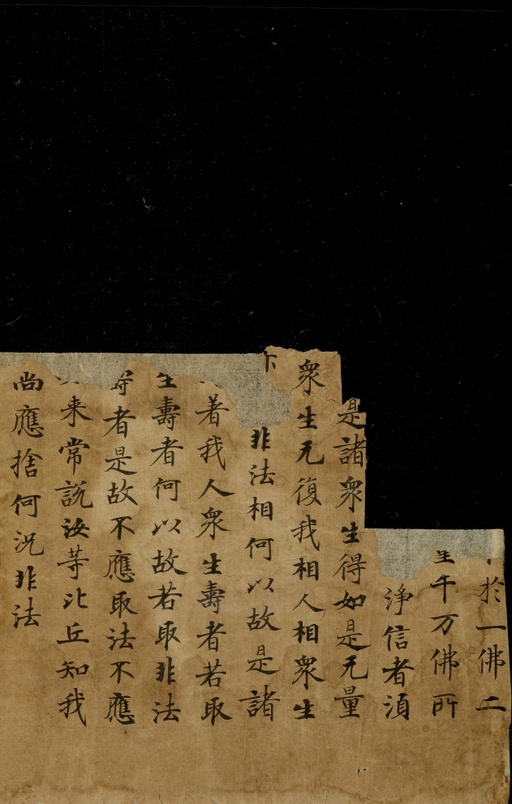 於一佛二
千万佛所
淨信者湏
是諸衆生得如是无量
衆生无復我相人相衆生
非法相何以故是諸
著我人衆生壽者若取
生壽者何以故若取非法
壽者是故不應取法不應
来常說汝䓁比丘知我
尚應捨何況非法